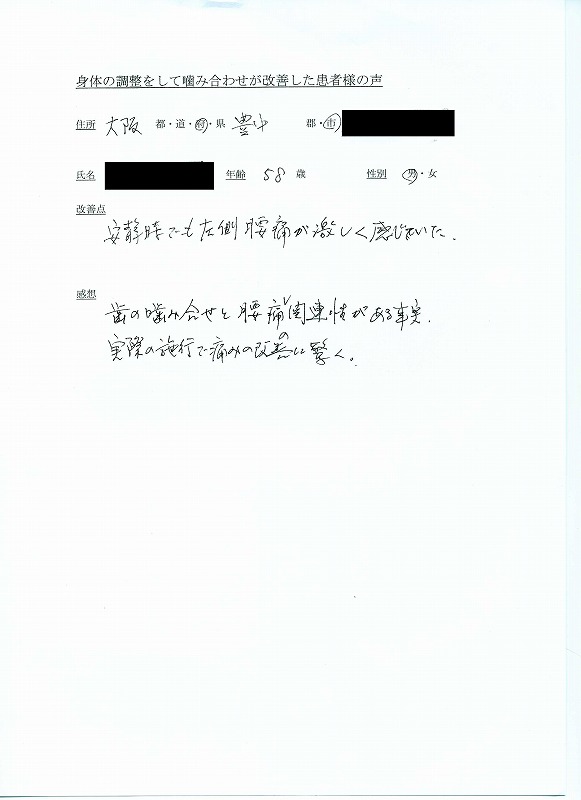 身体の調整をして噛み合わせが改善した患者様の声
住所 大阪 都・道・府・県 豊中 郡・市
氏名 年齢 58 歳 性別 男・女
改善点
安静時でも左側腰痛が激しく感じていた.
感想
歯の噛み合せと腰痛に関連性がある事実.
実際の施行で痛みの改善に驚く。